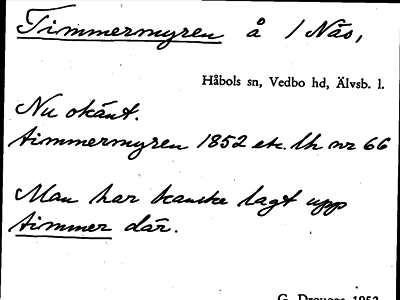 Timmermyren å 1 Näs,
Håbols sn, Vedbo hd, Älvsb. l.
Nu okänt.
timmermyren 1852 etc. lh nr 66
Man har kanske lagt upp
timmer där.